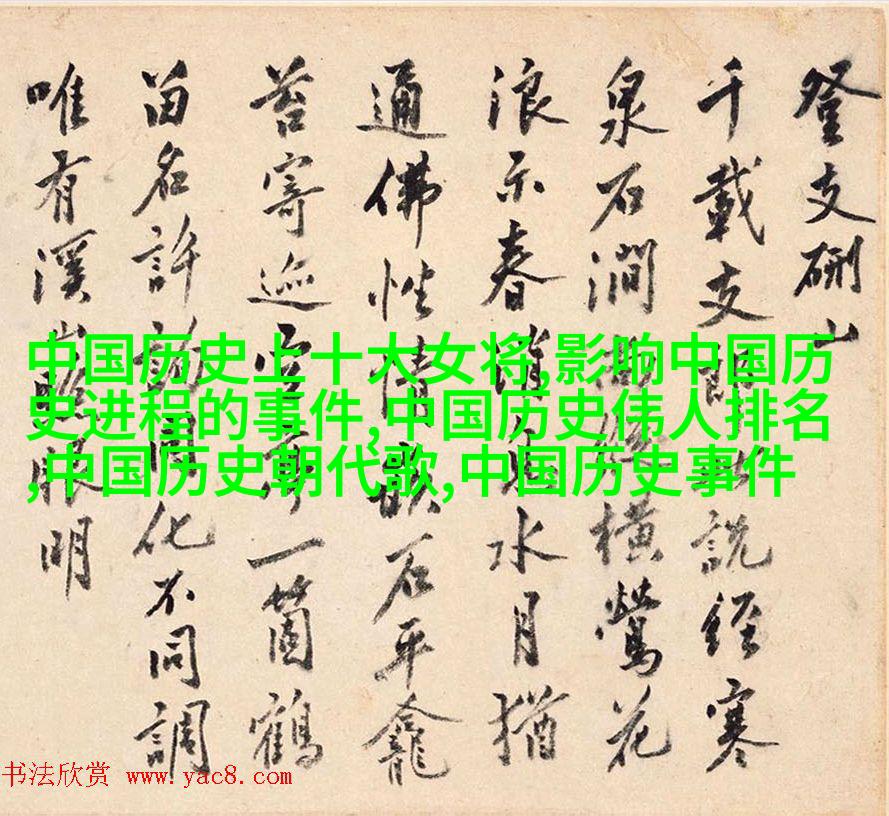 登支硎山
千載支說經寒
泉石澗橫鶯花
浪示春水月猶
通佛性情石平龕
苔寄巡一箇鶴
留名許同化不同調
唯有溪山照眼明
中国历史上十大女将,影响中国历
史进程的事件,中国历史伟人排名
,中国历史朝代歌,中国历史事件
书法欣赏 www.yac8.com